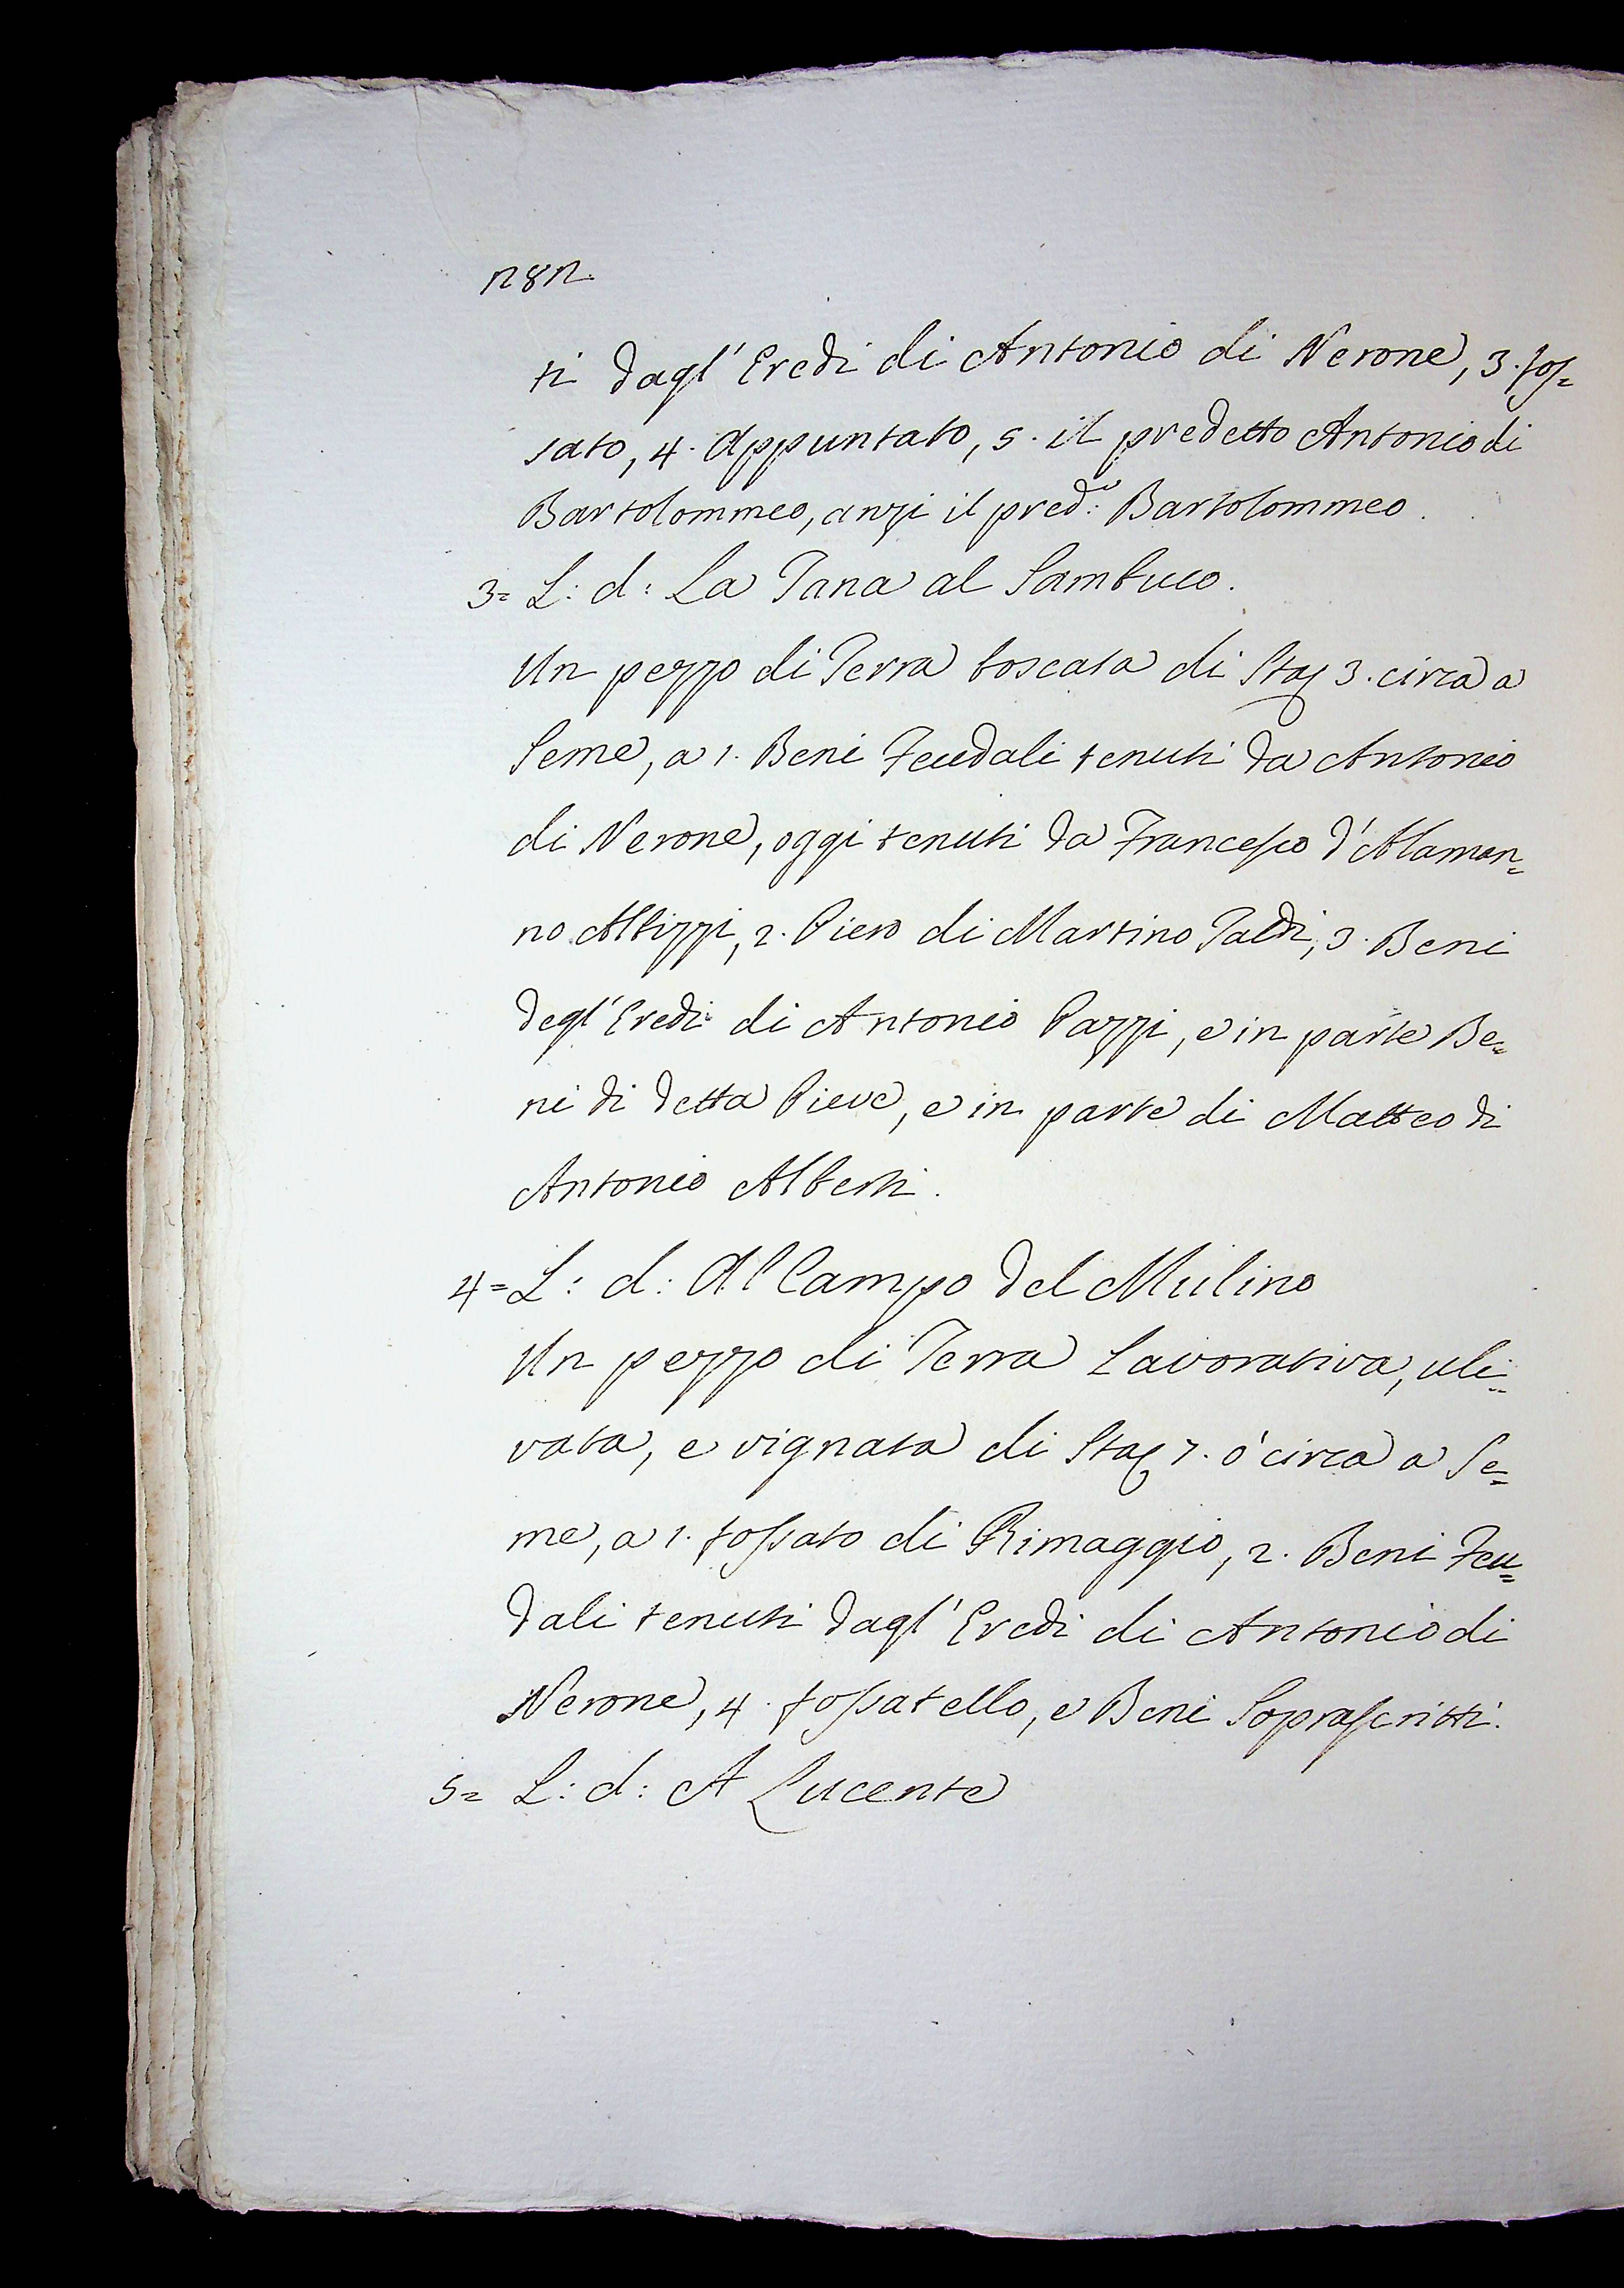 282.
ti dagl' Eredi di Antonio di Nerone, 3. fos=
sato, 4. Appuntato, 5. il predetto Antonio di
Bartolommeo, anzi il pred.o Bartolommeo.
3= L: d: La Tana al Sambuco.
Un pezzo di Terra boscata di Staj 3. circa a
Seme, a 1. Beni Feudali tenuti da Antonio
di Nerone, oggi tenuti da Francesco d'Alaman=
no Albizzi, 2. Piero di Martino Taldi, 3. Beni
degl' Eredi di Antonio Pazzi, e in parte Be=
ni di detta Pieve, e in parte di Matteo di
Antonio Alberti.
4= L: d: Al Campo del Mulino
Un pezzo di Terra Lavorativa, uli=
vata, e vignata di Staj 7. ò circa a Se=
me, a 1. fossato di Rimaggio, 2. Beni Feu=
dali tenuti dagl' Eredi di Antonio di
Nerone, 4. fossatello, e Beni Soprascritti.
5= L: d: A Lucente